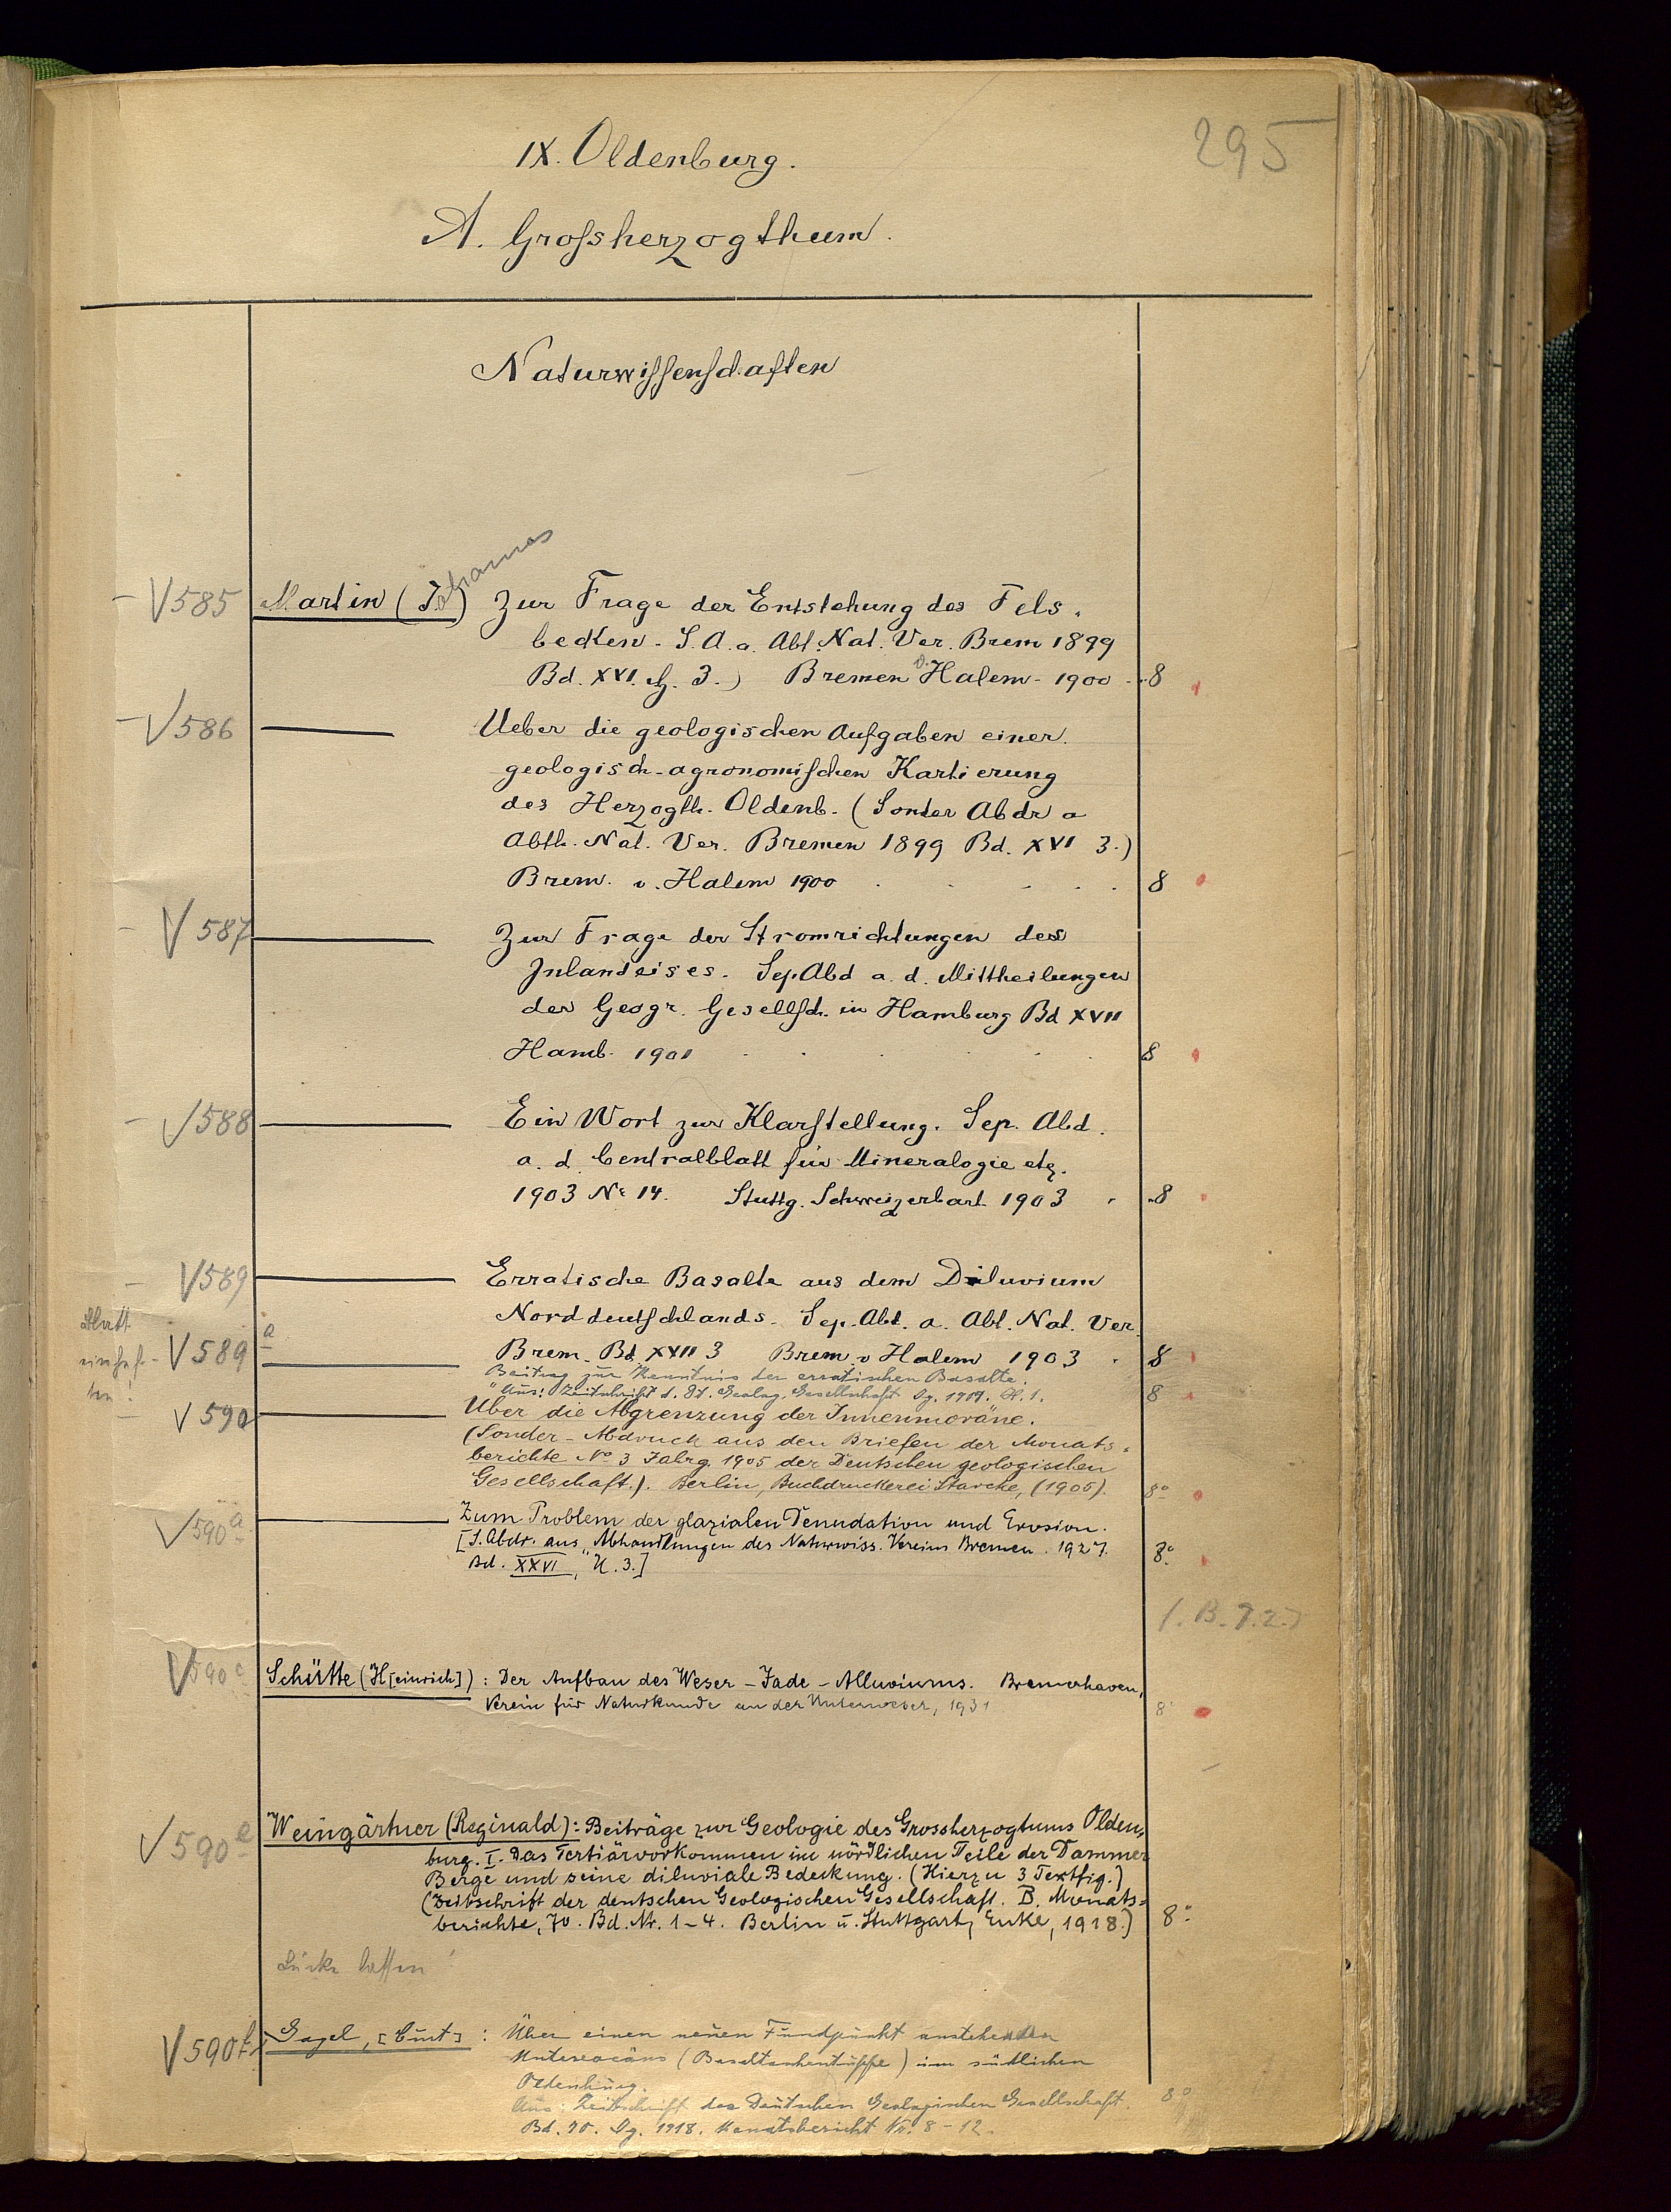 295
IX. Oldenburg.
A. Großherzogthum.
Naturwissenschaften
V585 Martin (Johannes) Zur Frage der Entstehung des Fels-
becken. S. A. a. Abt. Nat. Ver. Brem 1899
Bd. XVI. H. 3.) Bremen v. Halem - 1900 - 8
V586 Ueber die geologischen Aufgaben einer
geologisch-agronomischen Kartierung
des Herzogth. Oldenb. (Sonder Abdr a
Abth. Nat. Ver. Bremen 1899 Bd. XVI 3.)
Brem. v. Halem 1900 . . . . . 8
V587 Zur Frage der Stromrichtungen des
Inlandeises. Sep Abd a. d. Mittheilungen
der Geogr. Gesellsch. in Hamburg Bd XVII
Hamb. 1901 . . . . . 8
V588 Ein Wort zur Klarstellung. Sep. Abd.
a. d. Centralblatt für Mineralogie etz.
1903 No 14. Stuttg. Schweizerbart 1903 . . 8
V589 Erratische Basalte aus dem Diluvium
Norddeutschlands. Sep. Abt. a. Abt. Nat. Ver.
Brem. Bd. XVII 3 Brem. v Halem 1903 . 8
Blatt
V589 a
Beitrag zur Kenntnis der erratischen Basalte.
Aus: Zeitschrift d. Dt. Geolog. Gesellschaft Jg. 1909. H. 1. 8
V590 Über die Abgrenzung der Innenmoräne.
(Sonder-Abdruck aus den Briefen der Monats-
berichte No 3 Jahrg. 1905 der Deutschen geologischen
Gesellschaft.). Berlin, Buchdruckerei Starcke, (1905). 8°
V590 a Zum Problem der glazialen Denudation und Erosion.
[S. Abdr. aus "Abhandlungen des Naturwiss. Vereins Bremen. 1927.
Bd. XXVI", H. 3.] 8°
V590 c Schütte (H[einrich]): Der Aufbau des Weser-Jade-Alluviums. Bremerhaven,
Verein für Naturkunde an der Unterweser, 1931 8°
V590 e Weingärtner (Reginald): Beiträge zur Geologie des Grossherzogtums Olden-
burg. I. Das Tertiärvorkommen im nördlichen Teile der Dammer
Berge und seine diluviale Bedeckung. (Hierzu 3 Textfig.)
(Zeitschrift der deutschen Geologischen Gesellschaft. B. Monats-
berichte, 70. Bd. Nr. 1-4. Berlin u. Stuttgart, Enke, 1918.) 8°
Lücke lassen!
V590 f Gagel, [Curt]: Über einen neuen Fundpunkt anstehenden
Untereocäns (Basaltaschentuffe) im südlichen
Oldenburg.
Aus: Zeitschrift der Deutschen Geologischen Gesellschaft. 8°
Bd. 70. Jg. 1918. Monatsbericht Nr. 8-12.